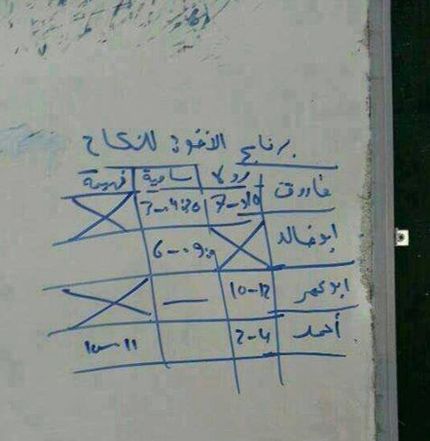 برنامج الاخوة للنكاح
رولا سامية فهيمة
فاروق 7-10 3-4:30
ابو خالد 6-9
ابو عمر 10-12 —
أحمد 2-4 10-11